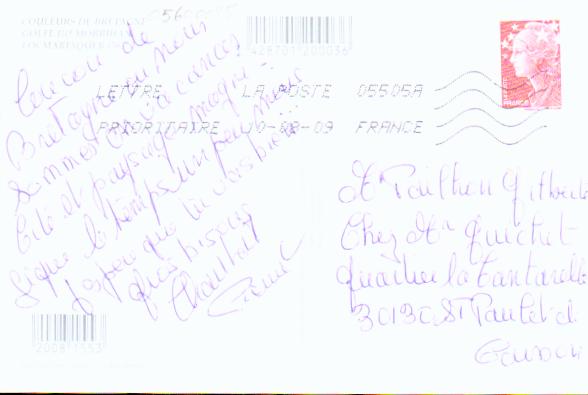 COULEURS DE BRETAGNE
GOLFE DU MORBIHAN
428701 200036
LETTRE LA POSTE 05505A
PRIORITAIRE 10-08-09 FRANCE
FRANCE
Coucou de
Bretagne où nous
sommes en vacances
Cité et paysage magni-
fique le temps un peu moins
J'espère que tu vas bien
gros bisous
Chantal
Pierre
Chez Mr Quichet
Quartier la Cantarelle
30130 St Paulet de
Caisson
2008 1153